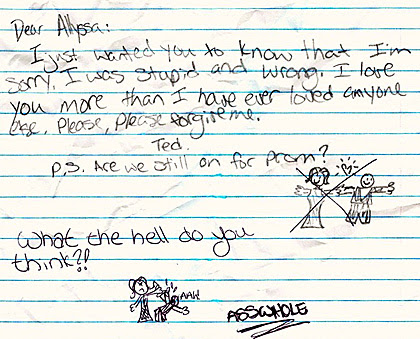 Dear Allyssa:
I just wanted you to know that I'm
sorry. I was stupid and wrong. I love
you more than I have ever loved anyone
else. Please, Please forgive me.
Ted.
P.S. Are we still on for prom?
What the hell do you
think?!
AAH!
ASSWHOLE